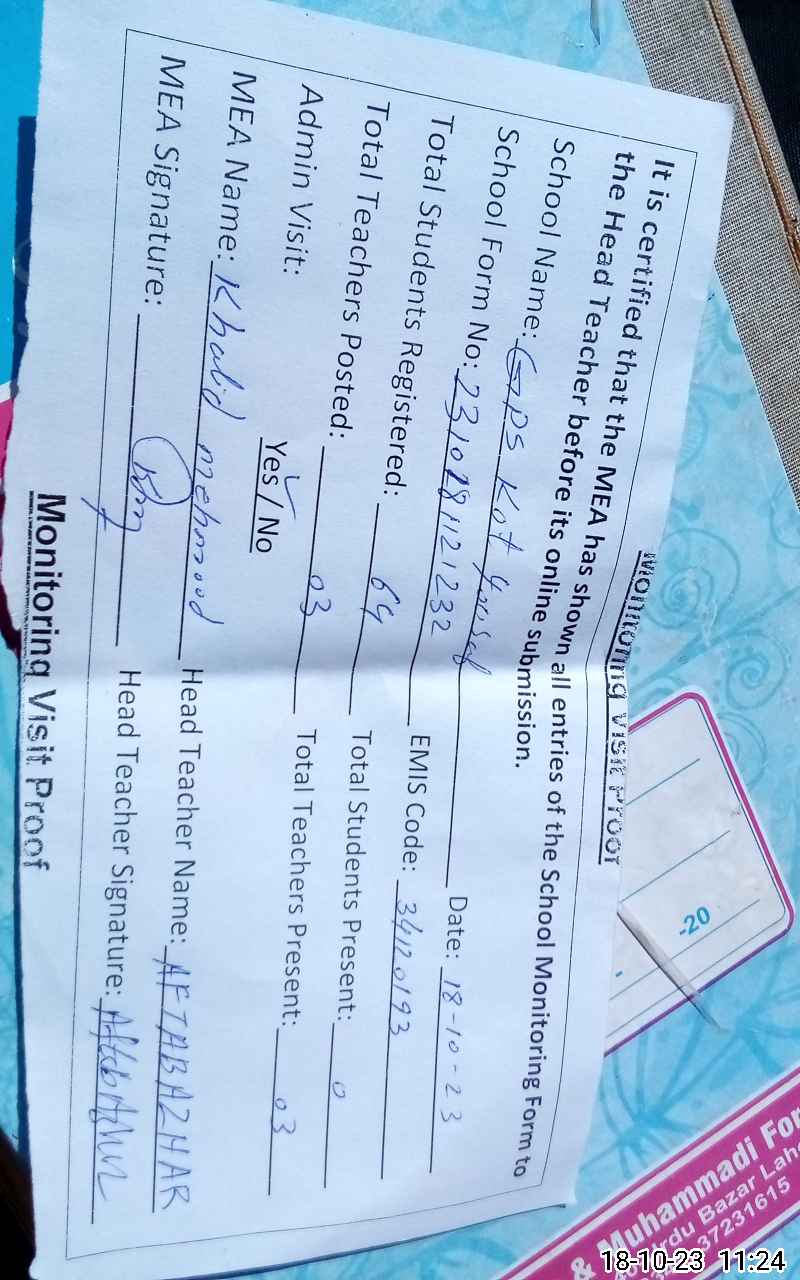 Monitoring Visit Proof
It is certified that the MEA has shown all entries of the School Monitoring Form to
the Head Teacher before its online submission.
School Name: GPS Kot Yousaf Date: 18-10-23
School Form No: 2310281121232 EMIS Code: 34120193
Total Students Registered: 64 Total Students Present: 0
Total Teachers Posted: 03 Total Teachers Present: 03
Admin Visit: Yes / No
MEA Name: Khalid mehmood Head Teacher Name: AFTAB AZHAR
MEA Signature: Head Teacher Signature: Aftab Azhar
Monitoring Visit Proof
-20
& Muhammadi For
Urdu Bazar Laho
37231615
18-10-23 11:24